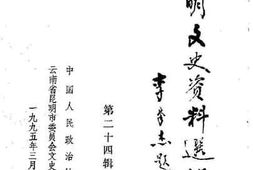 明文史资料选辑
李孝杰题
第二十四辑
中国人民政治
云南省昆明市委员会文史
一九九五年三月